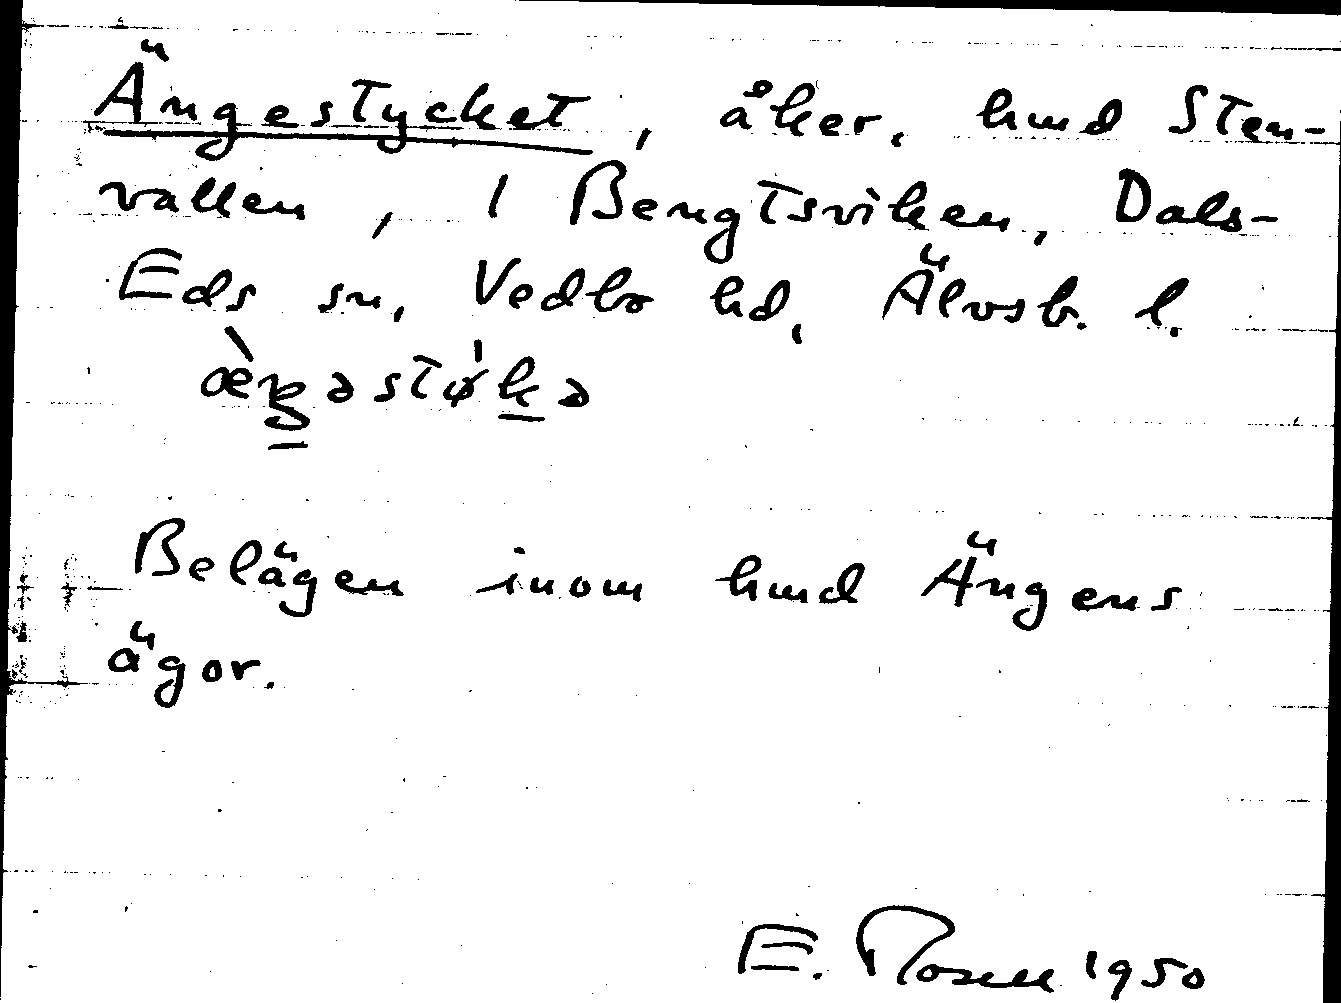 Ängestycket, åker, hmd Sten-
vallen, 1 Bengtsviken, Dals-
Eds sn, Vedbo hd, Älvsb. l.
Belägen inom hmd Ängens
ägor.
E. Rosell 1950